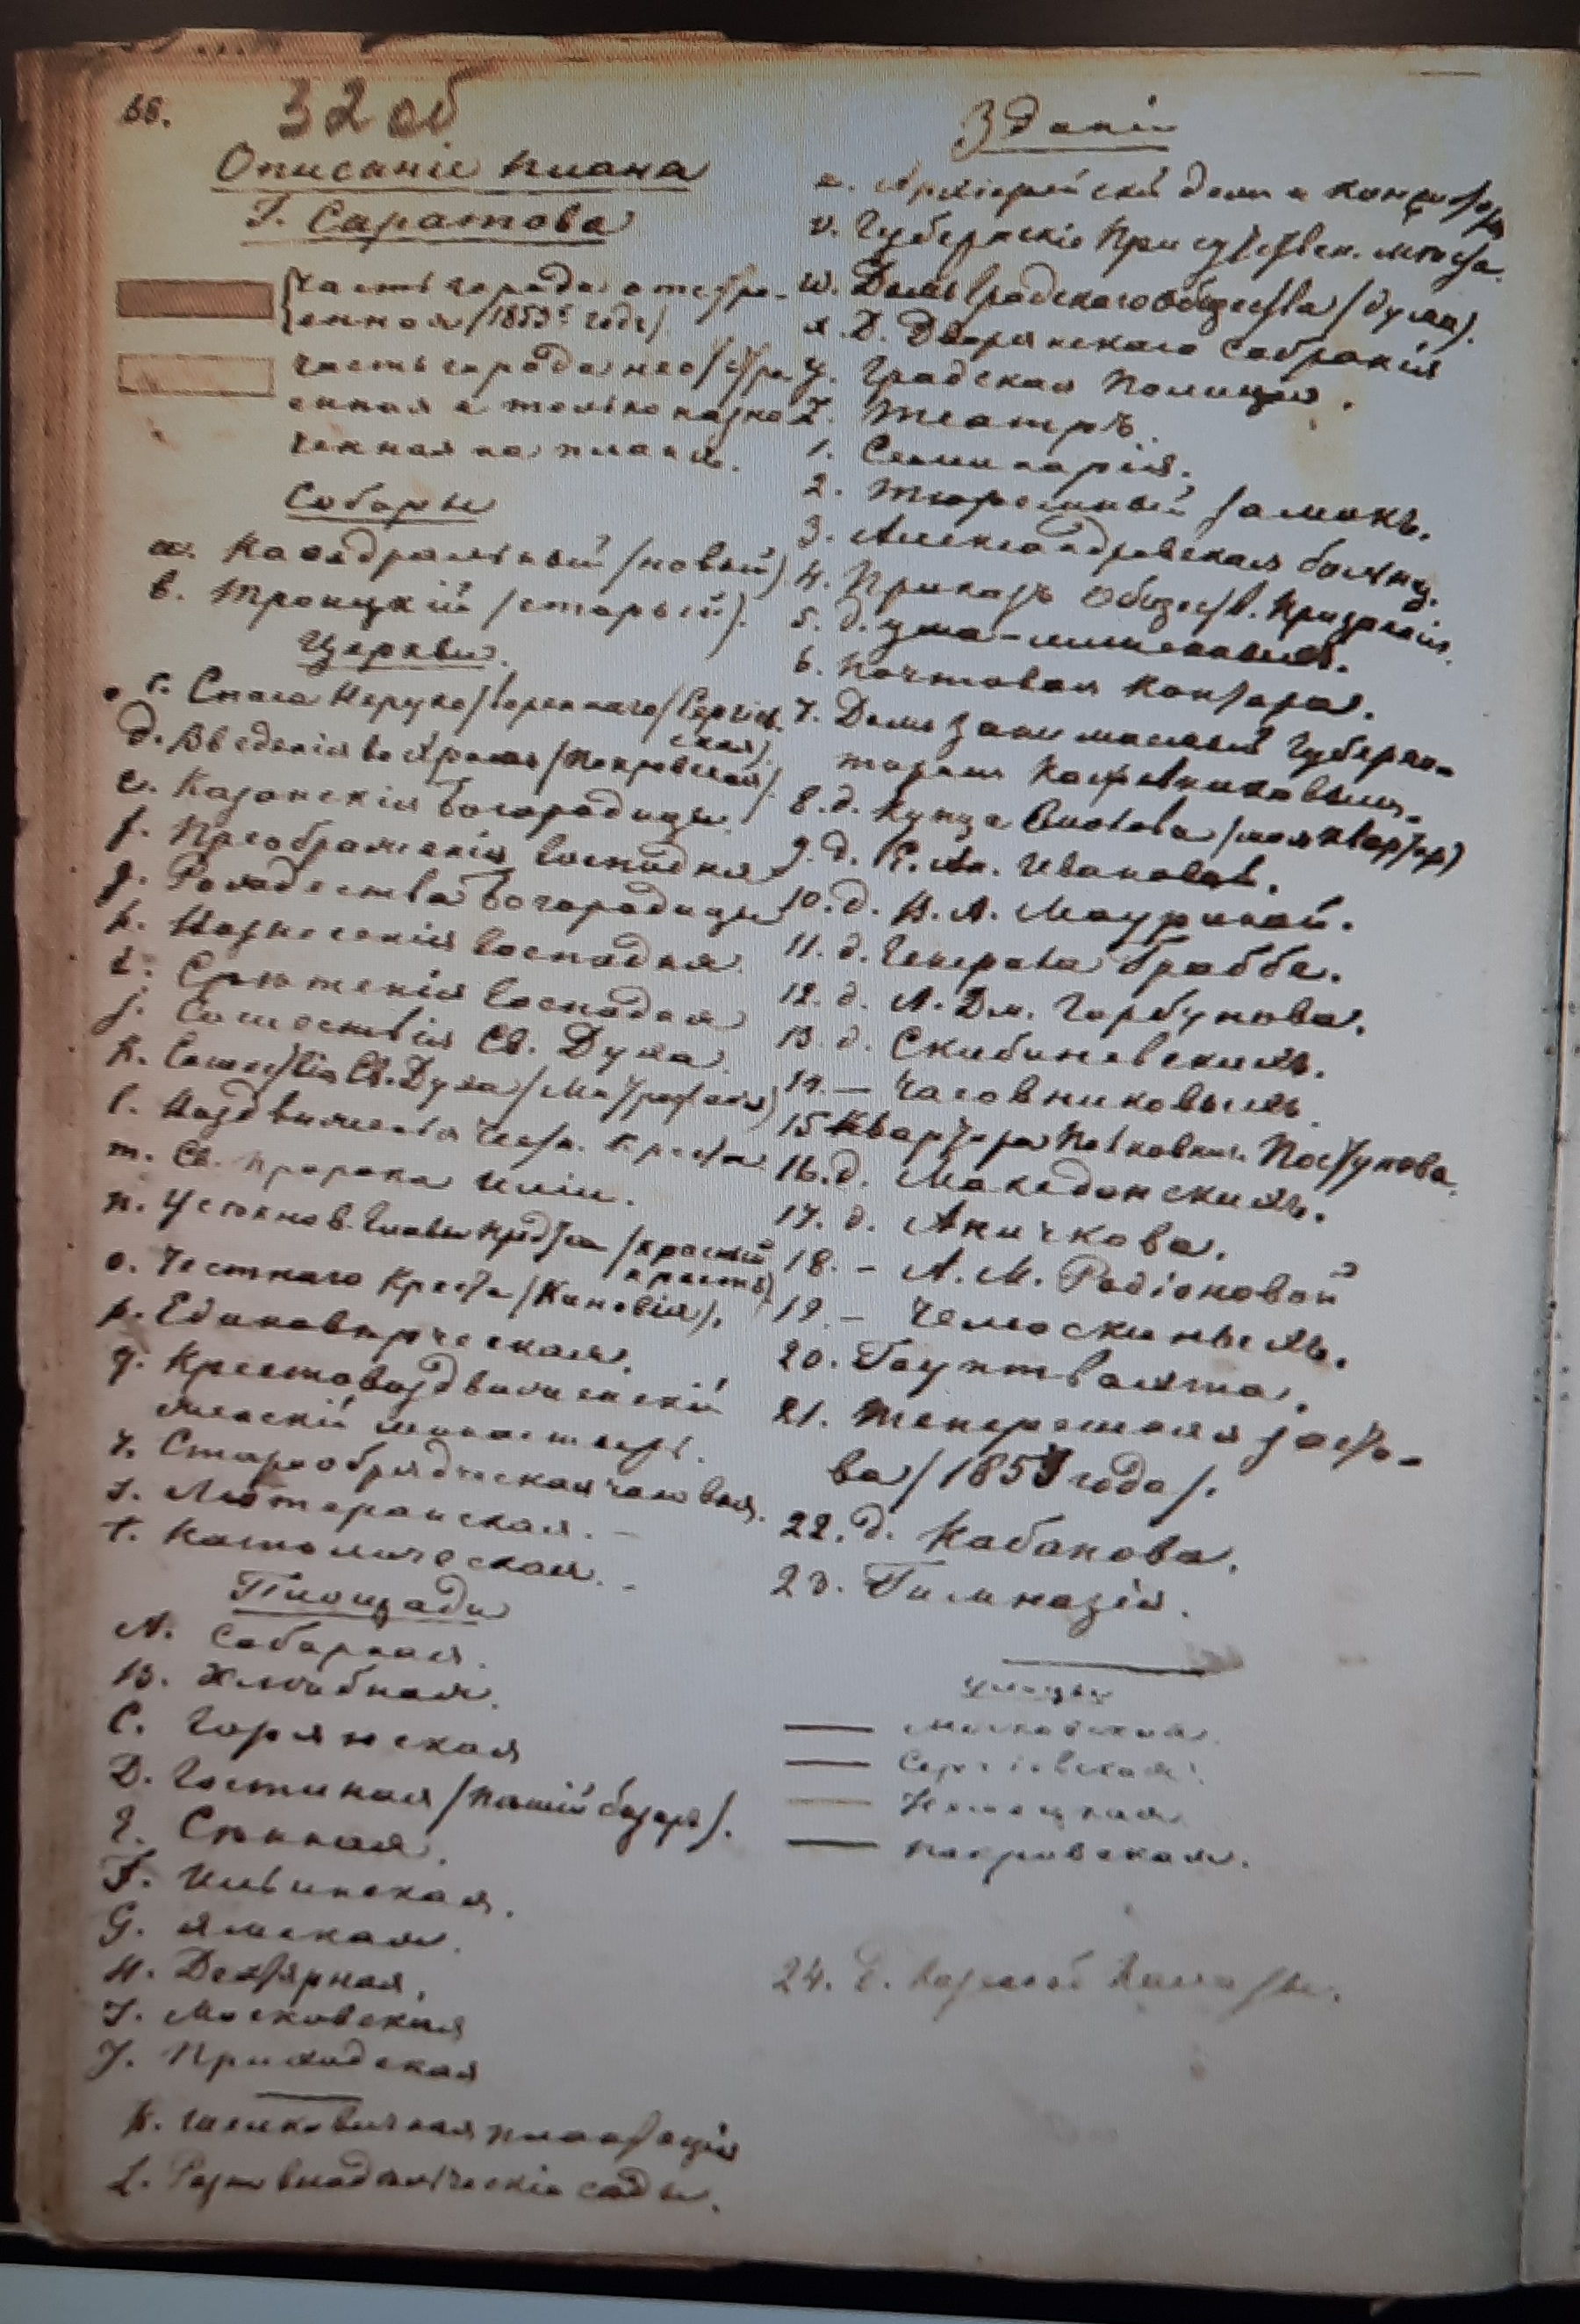 66.
32 об
Описаніе плана
Г. Саратова
Часть города отстро-
енная /1853г. года/
Часть города неотстро
енная а только назна
ченная на плане.
Соборы
а. Каѳедральный /новый/
b. Троицкій /старый/.
Церкви.
c. Спаса Нерукотвореннаго /Сергіев
ская/
d. Введенія во Храмъ /Покровская/
e. Казанскія Богородицы.
f. Преображенія Господня
g. Рождества Богородицы
h. Вознесенія Господня.
i. Срѣтенія Господня
j. Сошествія Св. Духа.
k. Сошествія Св. Духа /
l. Воздвиженія Честн. Креста
m. Св. Пророка Иліи.
n. Усѣкнов. Главы Предтеч /красный
крестъ/
o. Честнаго Креста /Киновія/.
p. Единовѣрческая.
q. Крестовоздвиженскій
женскій монастырь.
r. Старообрядческая часовня.
s. Лютеранская. –
t. Католическая. –
Площади
A. Соборная.
B. Хлѣбная.
C. Горянская
D. Гостиная /пѣшій базаръ/.
E. Сѣнная.
F. Ильинская.
G. Ямская.
H. Дегтярная.
I. Московская
J. Приходская
K. Шелковичная плантація
L. сады.
Зданія
u. Архіерейскій домъ и Консисторія
v. Губернскіе Присутствен. мѣста
w. Домъ Градскаго общества /дума/.
x. Д. Дворянскаго Собранія
y. Градская Полиція.
Z. Театръ.
1. Семинарія.
2. Тюремный замокъ.
3. Александровская больниц.
4. Приказъ Обществ. Призрѣнія.
5. д. ума-лишенныхъ.
6. Почтовая Контора.
7. Домъ занимаемый Губерна-
торомъ
8. д. Купца /моя квартир/
9. д. Ив. Иванова.
10. д. Н. А. Мауриной.
11. д. Генерала Граббе.
12. д. А. Дм. Горбунова.
13. д. Скибиневскихъ.
14. — Часовниковыхъ.
15 Квартира Полковник. Постунова.
16. д. Македонскихъ.
17. д. Аничкова.
18. – А. М. Радіоновой
19. – Чемоскиныхъ.
20. Гауптвахта.
21. Теперешняя заста-
ва /1853 года/.
22. д. Кабанова.
23. Гимназія.
Улицы
Московская.
Сергіевская.
Нѣмецкая
Покровская.
24. д.